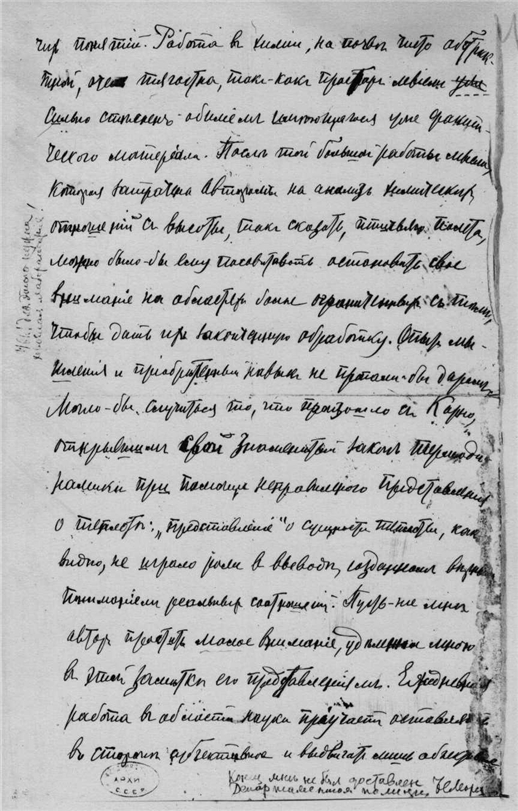 чих понятій. Работа въ химіи, на почвѣ чисто абстрак
тной, тягостна, такъ-какъ просторъ мысли
сильно стѣсненъ обиліемъ имѣющагося уже факти
ческаго матеріала. Послѣ той большой работы мысли,
которая затрачена авторомъ на анализъ химическихъ
отношеній съ высоты, такъ сказать, птичьяго полета,
можно было-бы ему посовѣтовать остановить свое
вниманіе на областяхъ болѣе ограниченныхъ съ тѣмъ,
чтобы дать имъ законченную обработку. Опытъ мы
шленія и пріобрѣтенный навыкъ не пропали-бы даромъ.
Могло-бы случиться то, что произошло съ Карно,
открывшимъ свой знаменитый законъ термоди
намики при помощи неправильнаго представленія
о теплотѣ: „представленіе" о сущности теплоты, какъ
видно, не играло роли въ выводѣ, созданномъ
пониманіемъ реальныхъ соотношеній. Пусть-же мнѣ
авторъ проститъ малое вниманіе, удѣленное мною
въ этой замѣткѣ его представленіямъ. Ежедневная
работа въ области науки пріучаетъ оставлять
въ сторонѣ субъективное и выдвигать лишь
мнѣ не былъ доставленъ
Департаментомъ полиціи
АРХИ
СССР